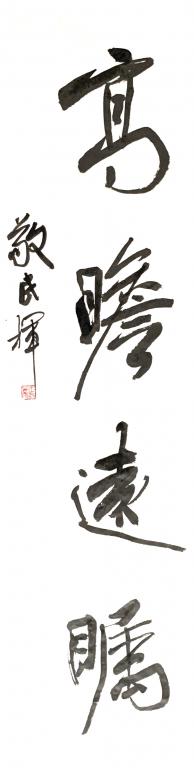 高瞻遠瞩
敬民揮